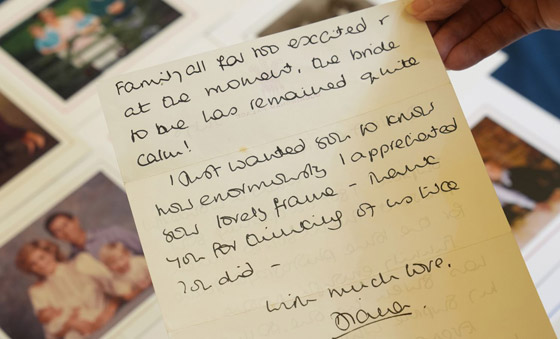 Family all far too excited r
at the moment, the bride
to be has remained quite
calm!
I just wanted you to know
how enormously I appreciated
your lovely frame – thank
you for thinking of us like
you did –
with much love,
Diana.